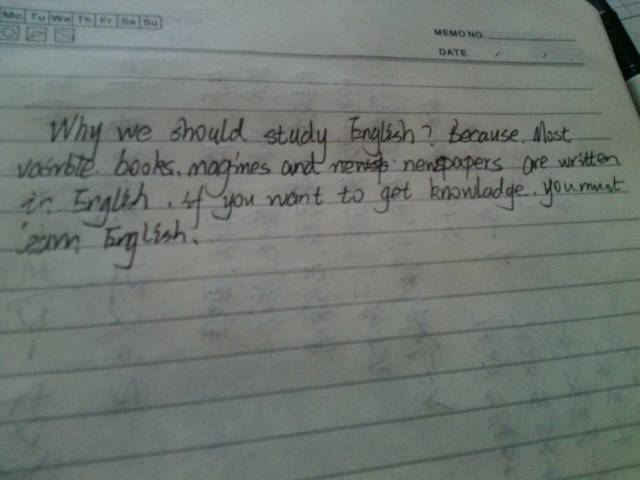 Mo Tu We Th Fr Sa Su
MEMO NO.
DATE / /
Why we should study English? Because. Most
vairrble books. magines and newsp newspapers are written
in English. if you want to get knowladge. you must
learn English.